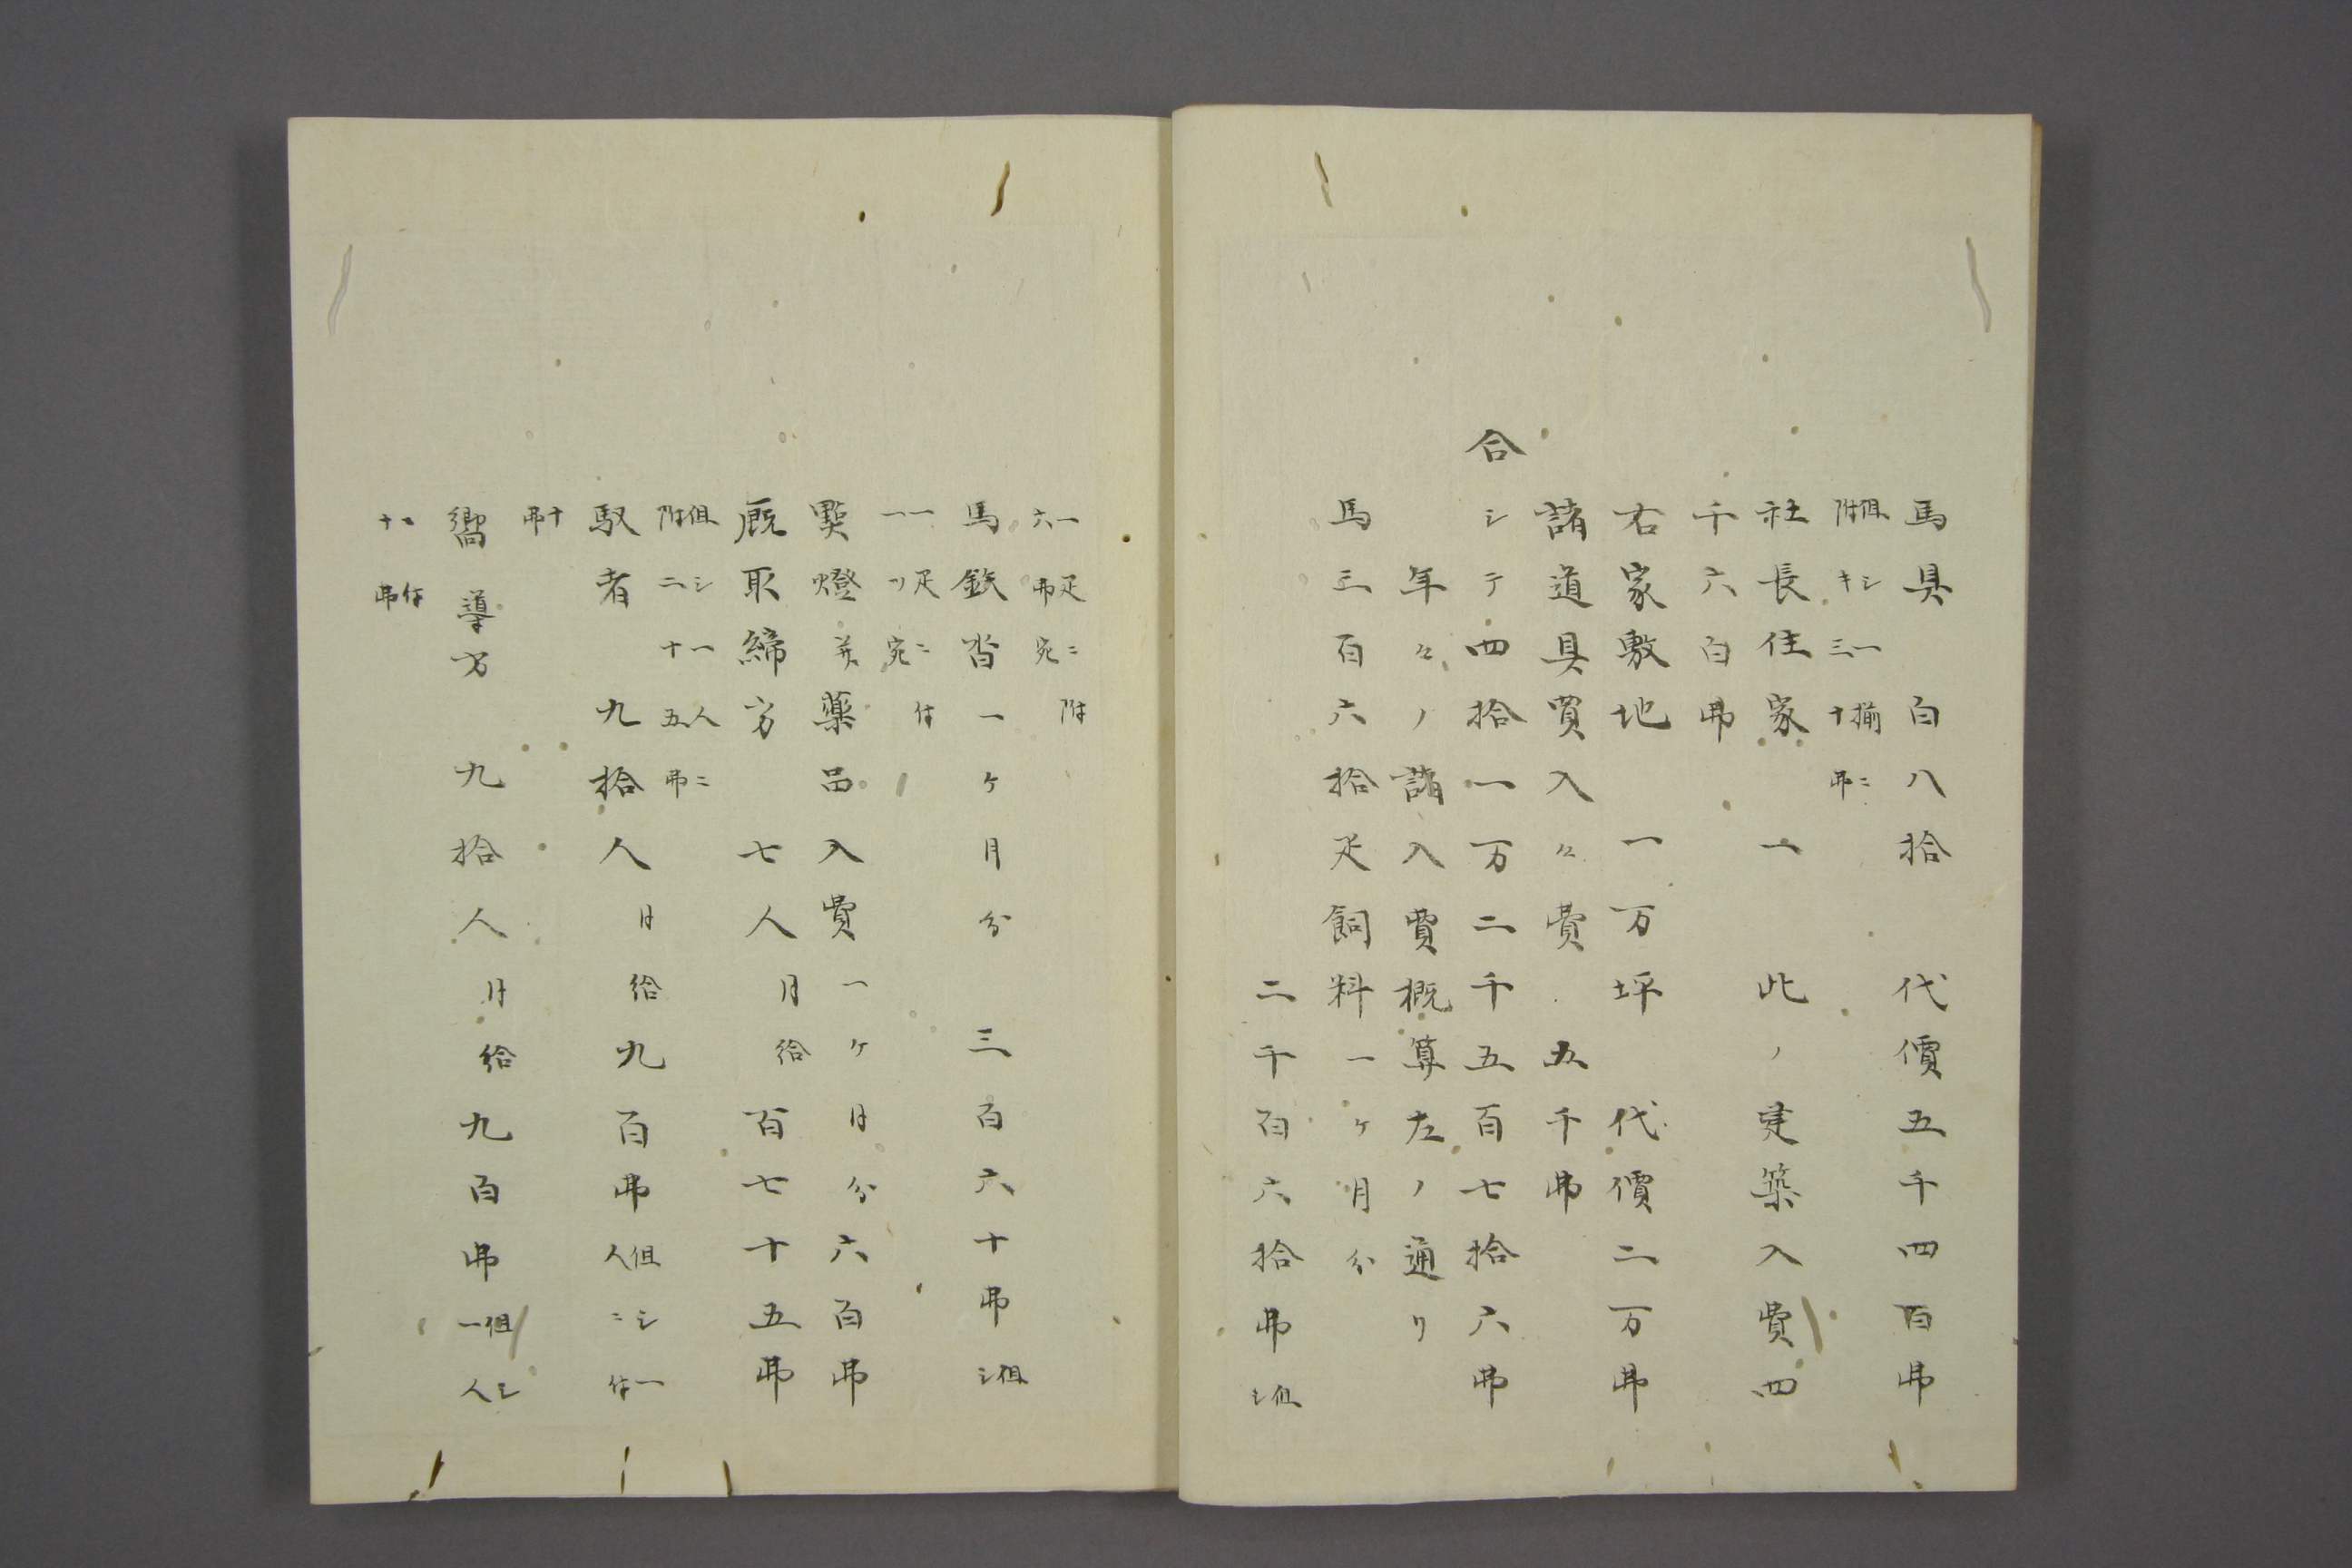 馬具　百八拾　代價五千四百弗
但シ一揃ニ
附キ三十弗
社長住家　一　此ノ建築入費四
千六百弗
右家敷地　一万坪　代價二万弗
諸道具買入々費　五千弗
合シテ四拾一万二千五百七拾六弗
年々ノ諸入費概算左ノ通リ
馬三百六拾疋飼料一ヶ月分
二千百六拾弗但シ
一疋ニ附
六弗宛
馬鉄沓一ヶ月分　三百六十弗但シ
一疋ニ付
一ツ宛
點燈并藥品入費一ヶ月分六百弗
厩取締方　七人月給　百七十五弗
但シ一人ニ
附二十五弗
馭者　九拾人月給九百弗但シ一
人ニ付
十
弗
嚮導方　九拾人月給九百弗但シ
一人
ニ付
十弗